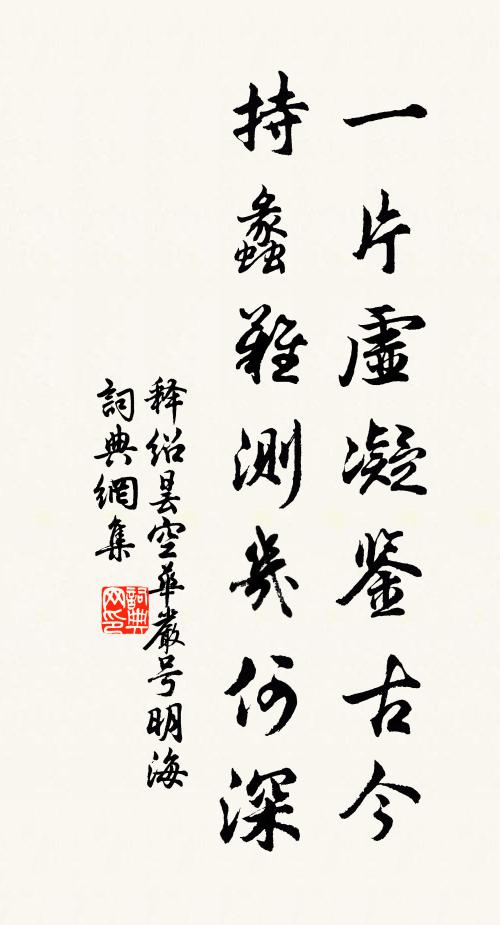 一片虛凝鉴古今
持蠡難測幾何深
释绍昙空華嚴号明海
詞典網集
詞典网印